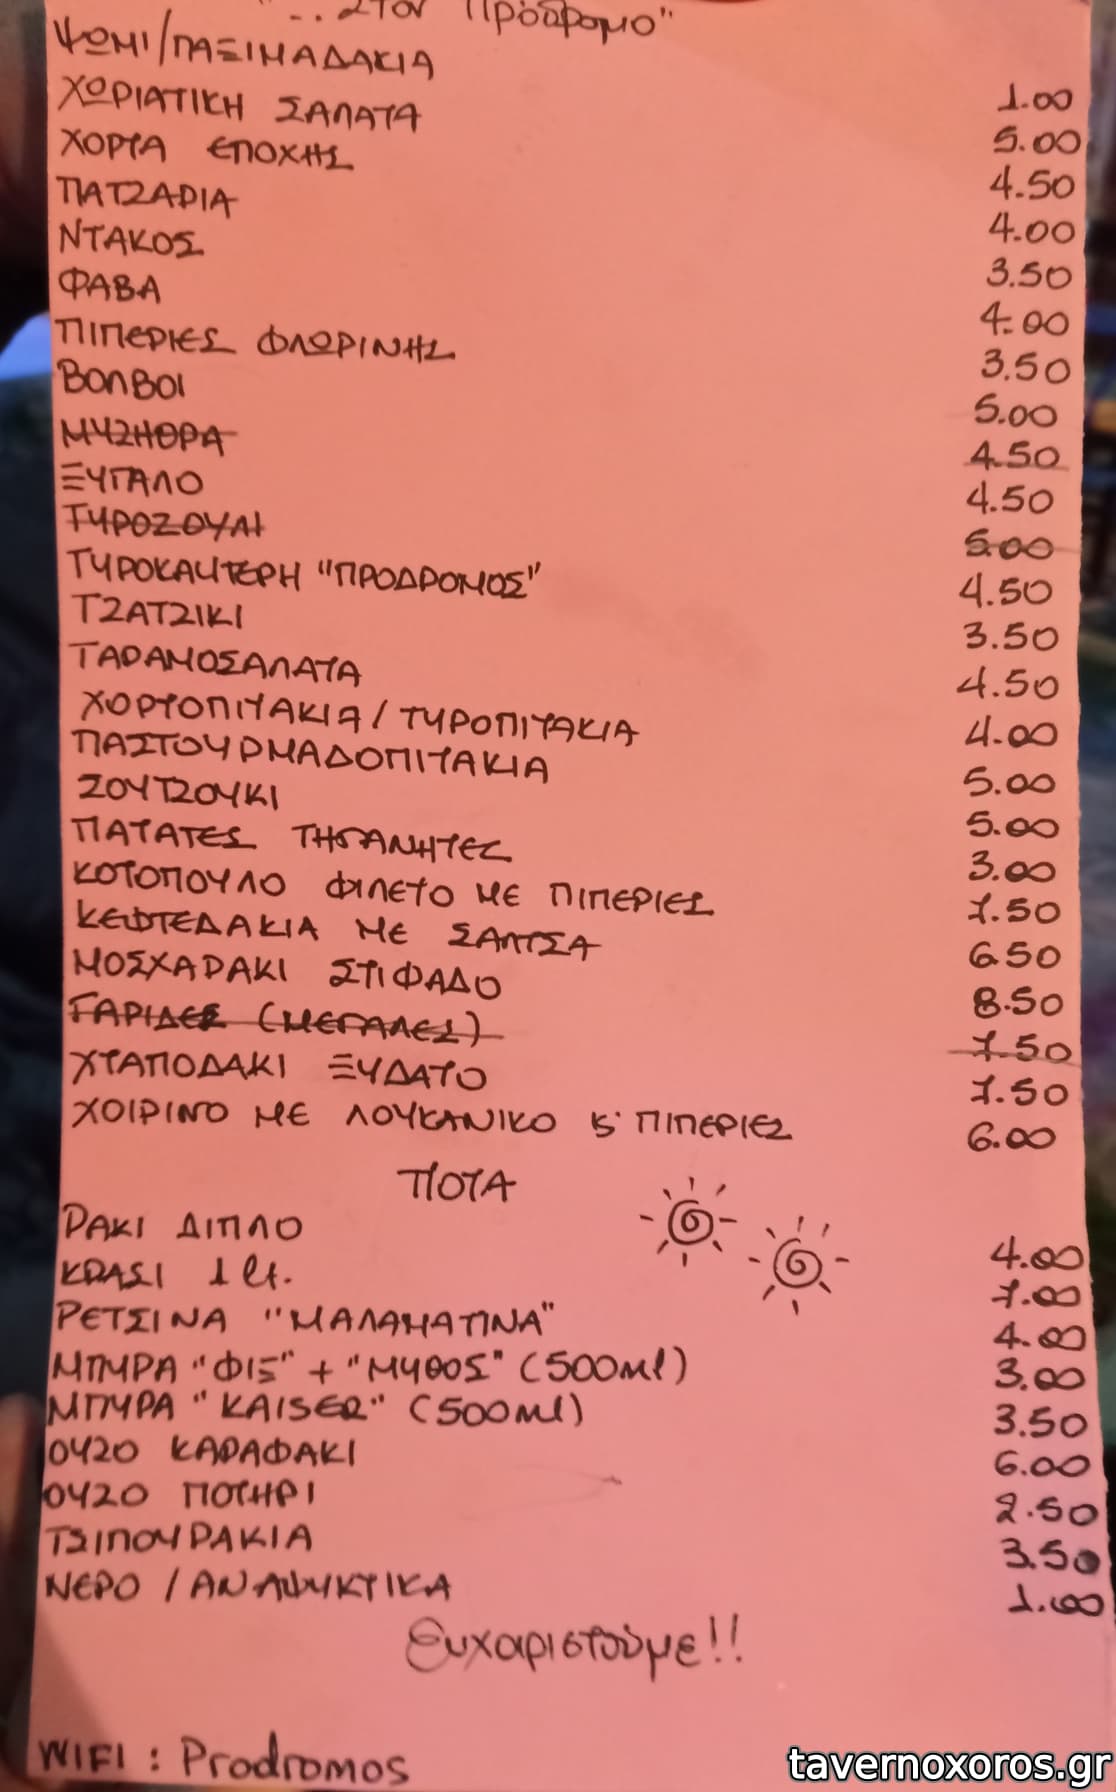 "...Στον Πρόδρομο"
ΨΩΜΙ/ΠΑΞΙΜΑΔΑΚΙΑ 1.00
ΧΩΡΙΑΤΙΚΗ ΣΑΛΑΤΑ 5.00
ΧΟΡΤΑ ΕΠΟΧΗΣ 4.50
ΠΑΤΖΑΡΙΑ 4.00
ΝΤΑΚΟΣ 3.50
ΦΑΒΑ 4.00
ΠΙΠΕΡΙΕΣ ΦΛΩΡΙΝΗΣ 3.50
ΒΟΛΒΟΙ 5.00
ΜΥΖΗΘΡΑ 4.50
ΞΥΓΑΛΟ 4.50
ΤΥΡΟΖΟΥΛΙ 5.00
ΤΥΡΟΚΑΥΤΕΡΗ "ΠΡΟΔΡΟΜΟΣ" 4.50
ΤΖΑΤΖΙΚΙ 3.50
ΤΑΡΑΜΟΣΑΛΑΤΑ 4.50
ΧΟΡΤΟΠΙΤΑΚΙΑ / ΤΥΡΟΠΙΤΑΚΙΑ 4.00
ΠΑΣΤΟΥΡΜΑΔΟΠΙΤΑΚΙΑ 5.00
ΣΟΥΤΖΟΥΚΙ 5.00
ΠΑΤΑΤΕΣ ΤΗΓΑΝΗΤΕΣ 3.00
ΚΟΤΟΠΟΥΛΟ ΦΙΛΕΤΟ ΜΕ ΠΙΠΕΡΙΕΣ 7.50
ΚΕΦΤΕΔΑΚΙΑ ΜΕ ΣΑΛΤΣΑ 6.50
ΜΟΣΧΑΡΑΚΙ ΣΤΙΦΑΔΟ 8.50
ΓΑΡΙΔΕΣ (ΜΕΓΑΛΕΣ) 7.50
ΧΤΑΠΟΔΑΚΙ ΞΥΔΑΤΟ 7.50
ΧΟΙΡΙΝΟ ΜΕ ΛΟΥΚΑΝΙΚΟ Κ' ΠΙΠΕΡΙΕΣ 6.00
ΠΟΤΑ
ΡΑΚΙ ΔΙΠΛΟ 4.00
ΚΡΑΣΙ 1 lt. 7.00
ΡΕΤΣΙΝΑ "ΜΑΛΑΜΑΤΙΝΑ" 4.00
ΜΠΥΡΑ "ΦΙΞ" + "ΜΥΘΟΣ" (500ml) 3.00
ΜΠΥΡΑ "KAISER" (500ml) 3.50
ΟΥΖΟ ΚΑΡΑΦΑΚΙ 6.00
ΟΥΖΟ ΠΟΤΗΡΙ 2.50
ΤΣΙΠΟΥΡΑΚΙΑ 3.50
ΝΕΡΟ / ΑΝΑΨΥΚΤΙΚΑ 1.00
Ευχαριστούμε!!
WIFI : Prodromos
tavernoxoros.gr